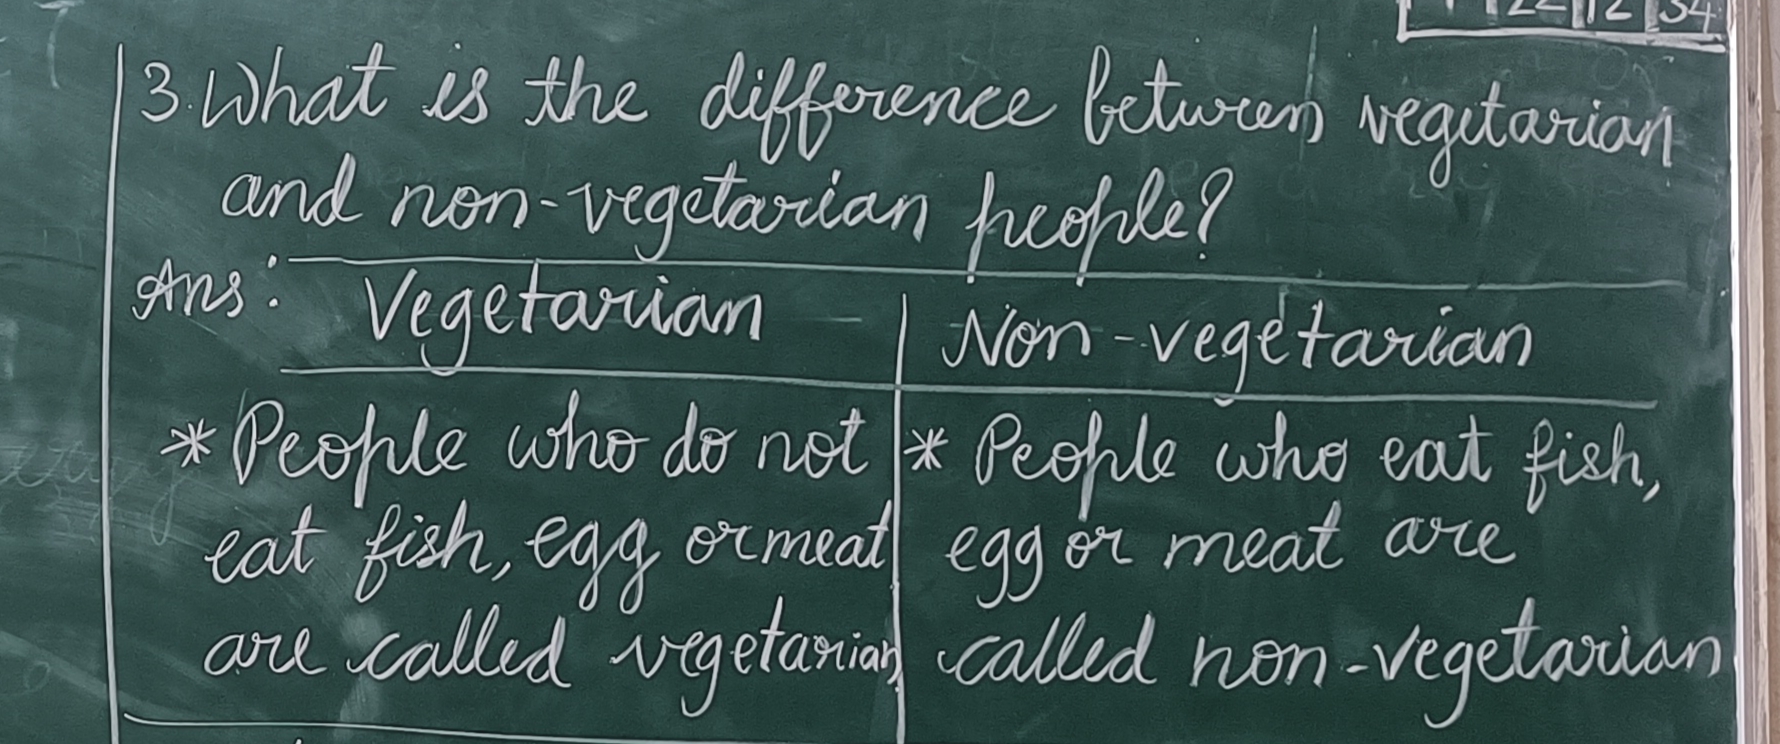 22 12 34
3. What is the difference between vegetarian
and non-vegetarian people?
Ans:
Vegetarian
Non-vegetarian
* People who do not
eat fish, egg or meat
are called vegetarian
* People who eat fish,
egg or meat are
called non-vegetarian